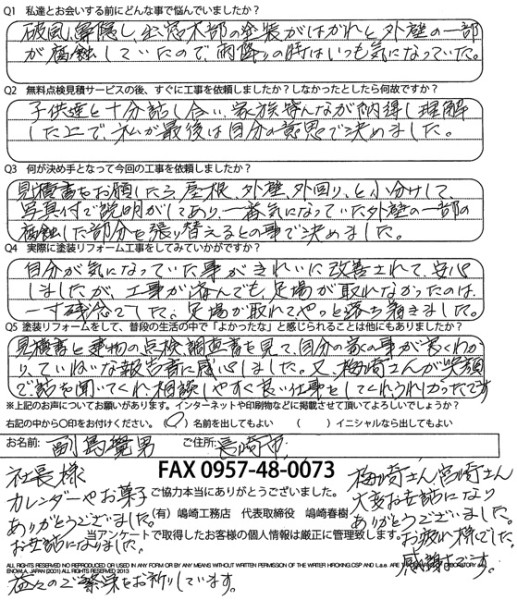 Q1 私達とお会いする前にどんな事で悩んでいましたか？
破風、鼻隠し、出窓木部の塗装がはがれと外壁の一部
が腐蝕していたので、雨降りの時はいつも気になっていた。
Q2 無料点検見積サービスの後、すぐに工事を依頼しましたか？しなかったとしたら何故ですか？
子供達と十分話し合い、家族皆んなが納得し理解
した上で、私が最後は自分の意思で決めました。
Q3 何が決め手となって今回の工事を依頼しましたか？
見積書をお願したら屋根、外壁、外回り、と小分けして、
写真付で説明がしてあり、一番気になっていた外壁の一部の
腐蝕した部分を張り替えるとの事で決めました。
Q4 実際に塗装リフォーム工事をしてみていかがですか？
自分が気になっていた事がきれいに改善されて、安心
しましたが、工事が済んでも足場が取れなかったのは、
一寸残念でした。足場が取れてやっと落ち着きました。
Q5 塗装リフォームをして、普段の生活の中で「よかったな」と感じられることは他にもありましたか？
見積書と建物の点検調査書を見て、自分の家の事が良くわか
り、ていねいな報告書に感心しました。又、梅崎さんが笑顔
で話を聞いてくれ、相談しやすく良い仕事をしてくれうれしかったです
※上記のお声についてお願いがあります。インターネットや印刷物などに掲載させて頂いてよろしいでしょうか？
右記の中から〇印をお付けください。（〇）名前を出してもよい　（　）イニシャルなら出してもよい
お名前：副島 男　ご住所：長崎市
社長様
カレンダーやお菓子
ありがとうございました。
お世話になりました。
益々のご繁栄をお祈りしています。
FAX 0957-48-0073
ご協力本当にありがとうございました。
（有）嶋崎工務店　代表取締役　嶋崎春樹
当アンケートで取得したお客様の個人情報は厳正に管理致します。
梅崎さん宮崎さん
大変お世話になり
ありがとうございました。
お疲れ様でした。
感謝です。
ALL RIGHTS RESERVED NO REPRODUCED OR USED IN ANY FORM OR BY ANY MEANS WITHOUT WRITTEN PERMISSION OF THE WRITER
JAPAN (2001) ALL RIGHTS RESERVED 2013